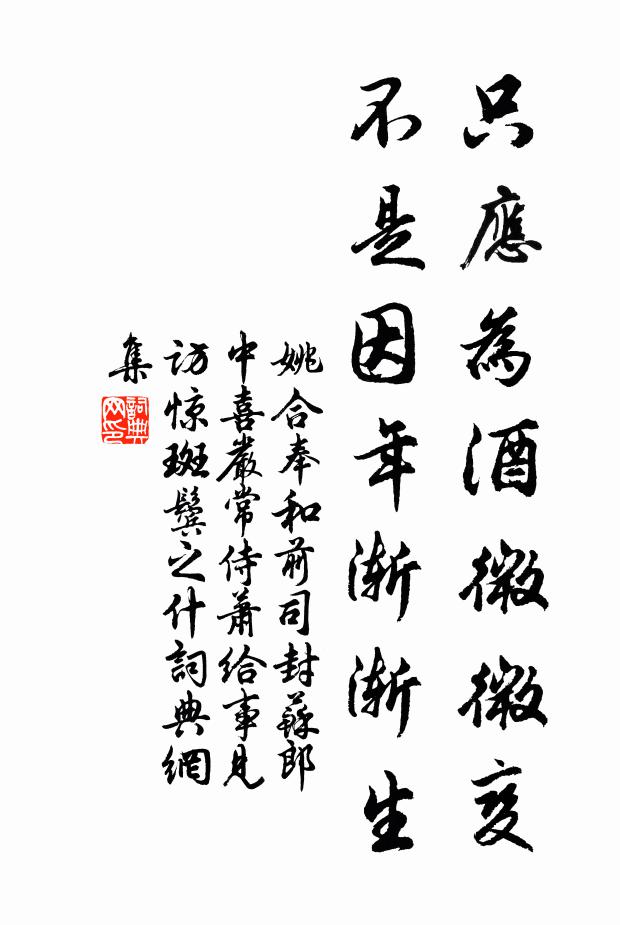 只應為酒微微變
不是因年漸漸生
姚合奉和前司封蘇郎
中喜嚴常侍蕭給事見
訪惊斑鬢之什詞典網
集
詞典网印